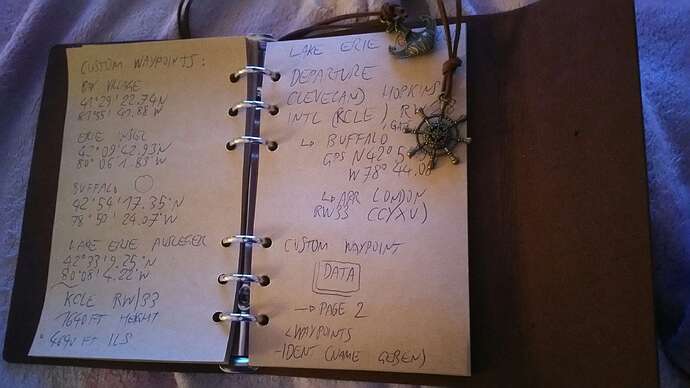 CUSTOM WAYPOINTS:
BAY VILLAGE
41°29' 22.74N
ERIE
42°09' 42.93N
80°06' 1.83 W
BUFFALO
42°54' 17.35"N
78°50' 24.07"W
LAKE ERIE AUSLEGER
42°33' 9.25"N
80°08' 4.22"W
KCLE RW/33
1640 FT HEIGHT
ILS
LAKE ERIE
DEPARTURE
CLEVELAND HOPKINS
INTL (KCLE) RW
GATE
↳ BUFFALO
GPS N42° 5
W78° 44.08
↳ APR LONDON
RW33 CCYXU)
CUSTOM WAYPOINT
DATA
→ PAGE 2
WAYPOINTS
-IDENT (NAME GEBEN)